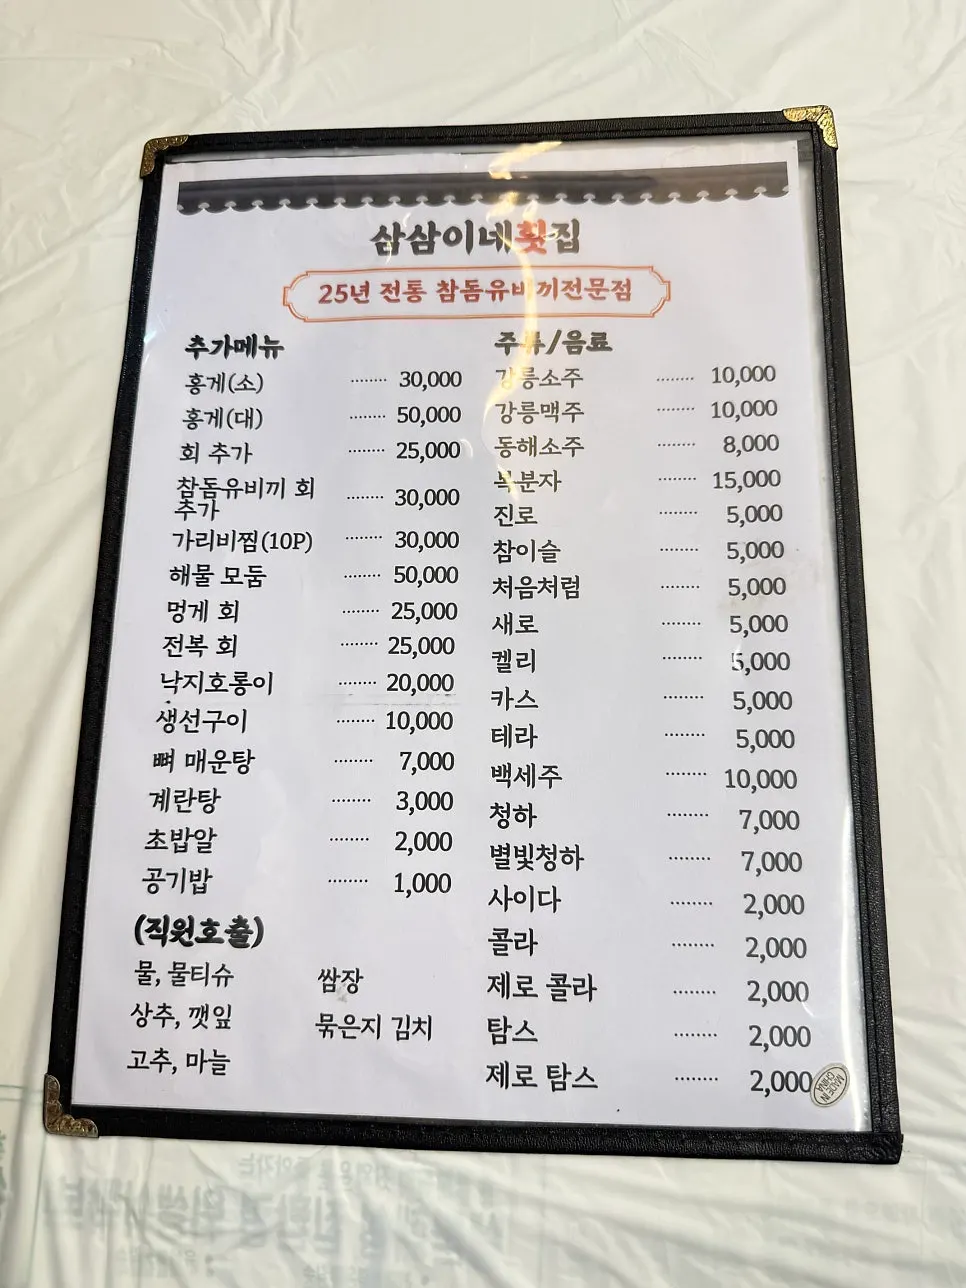 삼삼이네횟집
25년 전통 참돔유비끼전문점
추가메뉴
홍게(소) ········ 30,000
홍게(대) ········ 50,000
회 추가 ········ 25,000
참돔유비끼 회
추가 ········ 30,000
가리비찜(10P) ········ 30,000
해물 모둠 ········ 50,000
멍게 회 ········ 25,000
전복 회 ········ 25,000
낙지호롱이 ········ 20,000
생선구이 ········ 10,000
뼈 매운탕 ········ 7,000
계란탕 ········ 3,000
초밥알 ········ 2,000
공기밥 ········ 1,000
(직원호출)
물, 물티슈 쌈장
상추, 깻잎 묶은지 김치
고추, 마늘
주류/음료
강릉소주 ········ 10,000
강릉맥주 ········ 10,000
동해소주 ········ 8,000
복분자 ········ 15,000
진로 ········ 5,000
참이슬 ········ 5,000
처음처럼 ········ 5,000
새로 ········ 5,000
켈리 ········ 5,000
카스 ········ 5,000
테라 ········ 5,000
백세주 ········ 10,000
청하 ········ 7,000
별빛청하 ········ 7,000
사이다 ········ 2,000
콜라 ········ 2,000
제로 콜라 ········ 2,000
탐스 ········ 2,000
제로 탐스 ········ 2,000
MADE IN
CHINA